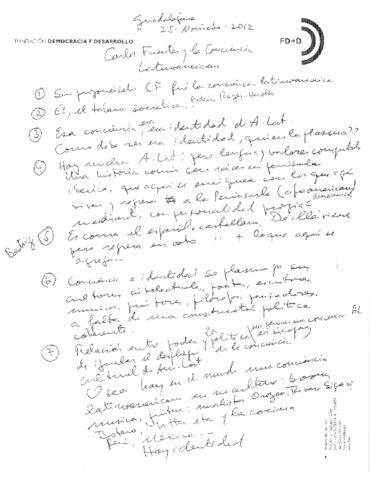 Guadalajara
25-Noviembre-2012
FUNDACIÓN DEMOCRACIA Y DESARROLLO
FD+D
Carlos Fuentes y la Conciencia
Latinoamericana
① Sin proponérselo CF fue la conciencia latinoamericana
② Él, el socrático...
③ Esa conciencia era era identidad de A. Lat
Como debe ser esa identidad, quien la plasma??
④ Hay mucha A. Lat; pero lengua y valores compartidos
Una historia común con raíces en península
ibérica, que aquí se enriquece con los que aquí
vivían y regresa a la Península
con personalidad propia
⑤ Es como el español, castellano. De allí viene
pero regresa + lo que aquí se
agrega..
⑥ Conciencia e identidad se plasma en sus
cultores, intelectuales, poetas, escritores,
músicos, pintores, filósofos, pensadores.
a falta de una construcción política
coherente.
⑦ Relación entre poder y la política
de igualar el despliegue de la conciencia
cultural de Am. Lat.
O sea hay en el mundo una conciencia
latinoamericana en su cultura:
música, pintura: muralistas Orozco, Rivera, Siqueiros
Botero, Matta etc y la cocina
Perú, México...
Hay identidad